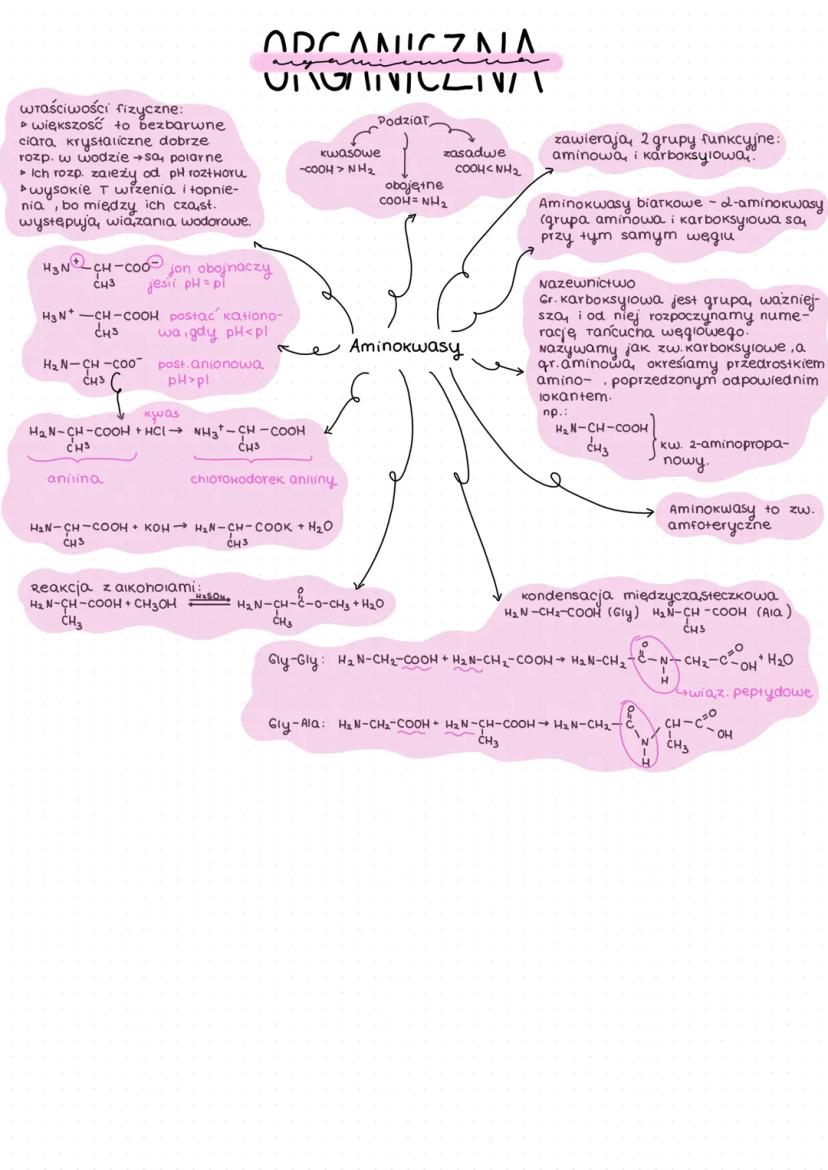 ORGANICZNA
organiczna
właściwości fizyczne:
▹ większość to bezbarwne
ciała krystaliczne dobrze
rozp. w wodzie → są polarne
▹ Ich rozp. zależy od pH roztworu
▹ wysokie T wrzenia i topnie-
nia, bo między ich cząst.
występują wiązania wodorowe.
Podział
kwasowe
-COOH > NH₂
obojętne
COOH = NH₂
zasadwe
COOH < NH₂
zawierają 2 grupy funkcyjne:
aminową i karboksylową.
Aminokwasy białkowe - α-aminokwasy
(grupa aminowa i karboksylowa są
przy tym samym węglu
Nazewnictwo
Gr. karboksylowa jest grupą ważniej-
szą i od niej rozpoczynamy nume-
rację łańcucha węglowego.
Nazywamy jak zw. karboksylowe, a
gr. aminową określamy przedrostkiem
amino- , poprzedzonym odpowiednim
lokantem.
np.:
H₂N-CH-COOH
CH₃
kw. 2-aminopropa-
nowy.
H₃N⁺-CH-COO⁻ jon obojnaczy
CH₃ jeśli pH = pI
H₃N⁺-CH-COOH postać kationo-
CH₃ wa, gdy pH<pI
H₂N-CH-COO⁻ post. anionowa
CH₃ pH>pI
Aminokwasy
kwas
H₂N-CH-COOH + HCl → NH₃⁺-CH-COOH
CH₃ CH₃
anilina chlorowodorek aniliny
H₂N-CH-COOH + KOH → H₂N-CH-COOK + H₂O
CH₃ CH₃
Aminokwasy to zw.
amfoteryczne
Reakcja z alkoholami:
H₂SO₄
O
H₂N-CH-COOH + CH₃OH ⇌ H₂N-CH-C-O-CH₃ + H₂O
CH₃ CH₃
kondensacja międzycząsteczkowa
H₂N-CH₂-COOH (Gly) H₂N-CH-COOH (Ala)
CH₃
Gly-Gly: H₂N-CH₂-COOH + H₂N-CH₂-COOH → H₂N-CH₂-C(=O)-N-CH₂-C(=O)OH + H₂O
H
→ wiąz. peptydowe
Gly-Ala: H₂N-CH₂-COOH + H₂N-CH-COOH → H₂N-CH₂-C(=O)-N-CH-C(=O)OH
CH₃ H CH₃